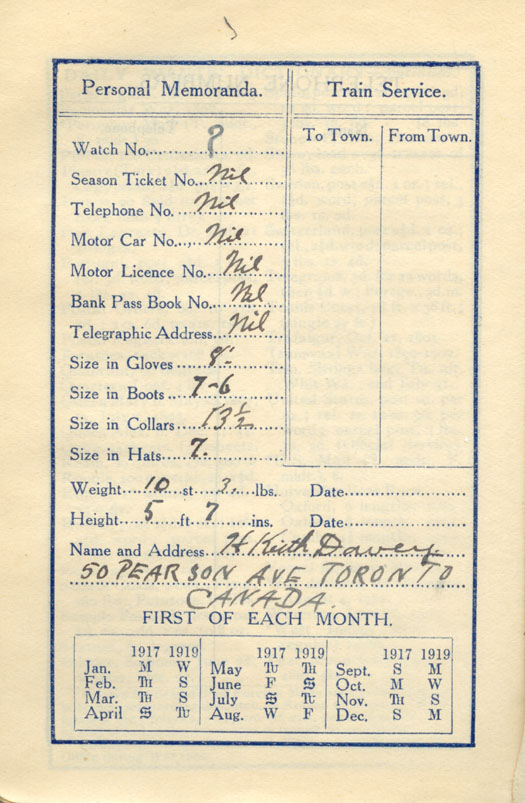 Personal Memoranda. Train Service.
To Town. From Town.
Watch No. ?
Season Ticket No. Nil
Telephone No. Nil
Motor Car No. Nil
Motor Licence No. Nil
Bank Pass Book No. Nil
Telegraphic Address Nil
Size in Gloves 8
Size in Boots 7-6
Size in Collars 13½
Size in Hats 7.
Weight 10 st 3. lbs. Date
Height 5 ft 7 ins. Date
Name and Address H Keith Davey
50 PEARSON AVE TORONTO
CANADA.
FIRST OF EACH MONTH.
1917 1919 1917 1919 1917 1919
Jan. M W May TU TH Sept. S M
Feb. TH S June F S Oct. M W
Mar. TH S July S TU Nov. TH S
April S TU Aug. W F Dec. S M